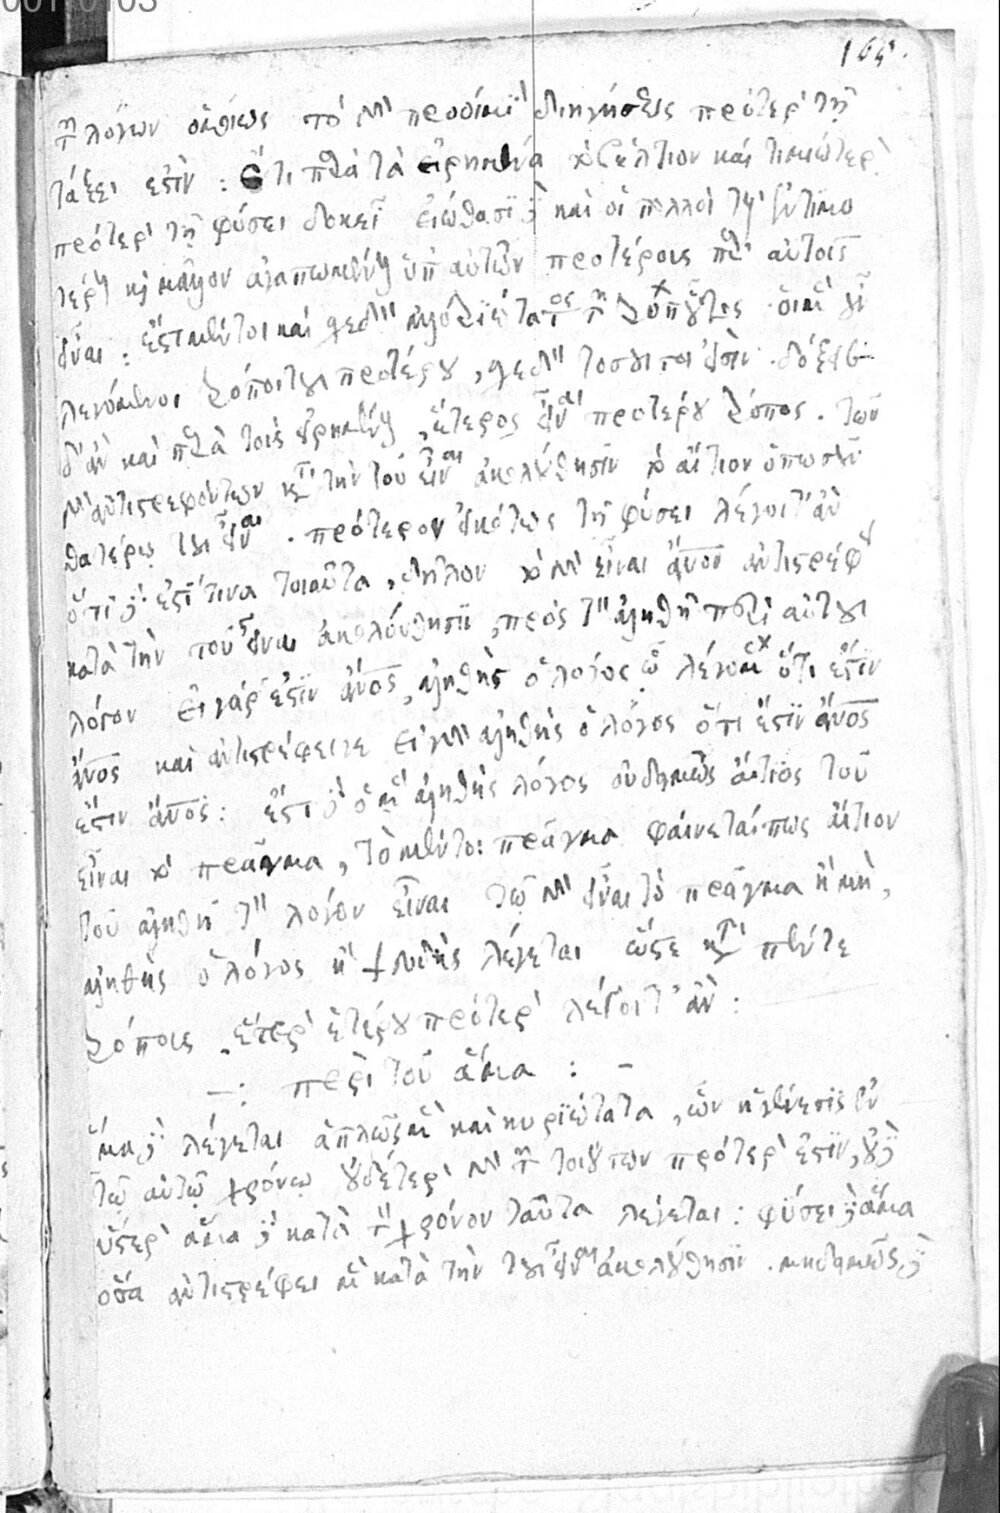 00110103
165
τῶν λόγων ὁμοίως τὸ μὲν προοίμιον διηγήσεως πρότερον τῇ
τάξει ἐστίν : Ἔτι παρὰ τὰ εἰρημένα τὸ βέλτιον καὶ τιμιώτερον
πρότερον τῇ φύσει δοκεῖ εἰώθασι δὲ καὶ οἱ πολλοὶ τοὺς ἐντιμο
τέρους καὶ μᾶλλον ἀγαπωμένους ὑπ' αὐτῶν προτέρους παρ' αὐτοῖς
εἶναι : ἔστι μέντοι καὶ σχεδὸν ἀλλοτριώτατος τῶν τρόπων οὗτος · οἱ μὲν οὖν
λεγόμενοι τρόποι τοῦ προτέρου, σχεδὸν τοσοῦτοί εἰσιν · δόξειε
δ' ἂν καὶ παρὰ τοὺς εἰρημένους, ἕτερος εἶναι προτέρου τρόπος . τῶν
γὰρ ἀντιστρεφόντων κατὰ τὴν τοῦ εἶναι ἀκολούθησιν τὸ αἴτιον ὁπωσοῦν
θατέρῳ τοῦ εἶναι · πρότερον εἰκότως τῇ φύσει λέγοιτ' ἂν
ὅτι δ' ἐστί τινα τοιαῦτα, δῆλον τὸ γὰρ εἶναι ἄνον ἀντιστρέφει
κατὰ τὴν τοῦ εἶναι ἀκολούθησιν, πρὸς τὸν ἀληθῆ περὶ αὐτοῦ
λόγον εἰ γάρ ἐστιν ἄνος, ἀληθὴς ὁ λόγος ᾧ λέγομεν ὅτι ἐστὶν
ἄνος καὶ ἀντιστρέφει γε εἰ γὰρ ἀληθὴς ὁ λόγος ὅτι ἐστὶν ἄνος
ἔστιν ἄνος : ἔστι δὲ ὁ μὲν ἀληθὴς λόγος οὐδαμῶς αἴτιος τοῦ
εἶναι τὸ πρᾶγμα, τὸ μέντοι πρᾶγμα φαίνεταί πως αἴτιον
τοῦ ἀληθῆ τὸν λόγον εἶναι τῷ γὰρ εἶναι τὸ πρᾶγμα ἢ μὴ,
ἀληθὴς ὁ λόγος ἢ ψευδὴς λέγεται ὥστε κατὰ πέντε
τρόπους ἕτερον ἑτέρου πρότερον λέγοιτ' ἂν :
—: περὶ τοῦ ἅμα : —
ἅμα δὲ λέγεται ἁπλῶς μὲν καὶ κυριώτατα, ὧν ἡ γένεσις ἐν
τῷ αὐτῷ χρόνῳ οὐδέτερον γὰρ τῶν τοιούτων πρότερόν ἐστιν, οὐδὲ
ὕστερον ἅμα δὲ κατὰ τὸν χρόνον ταῦτα λέγεται : φύσει δὲ ἅμα
ὅσα ἀντιστρέφει μὲν κατὰ τὴν τοῦ εἶναι ἀκολούθησιν . μηδαμῶς δὲ